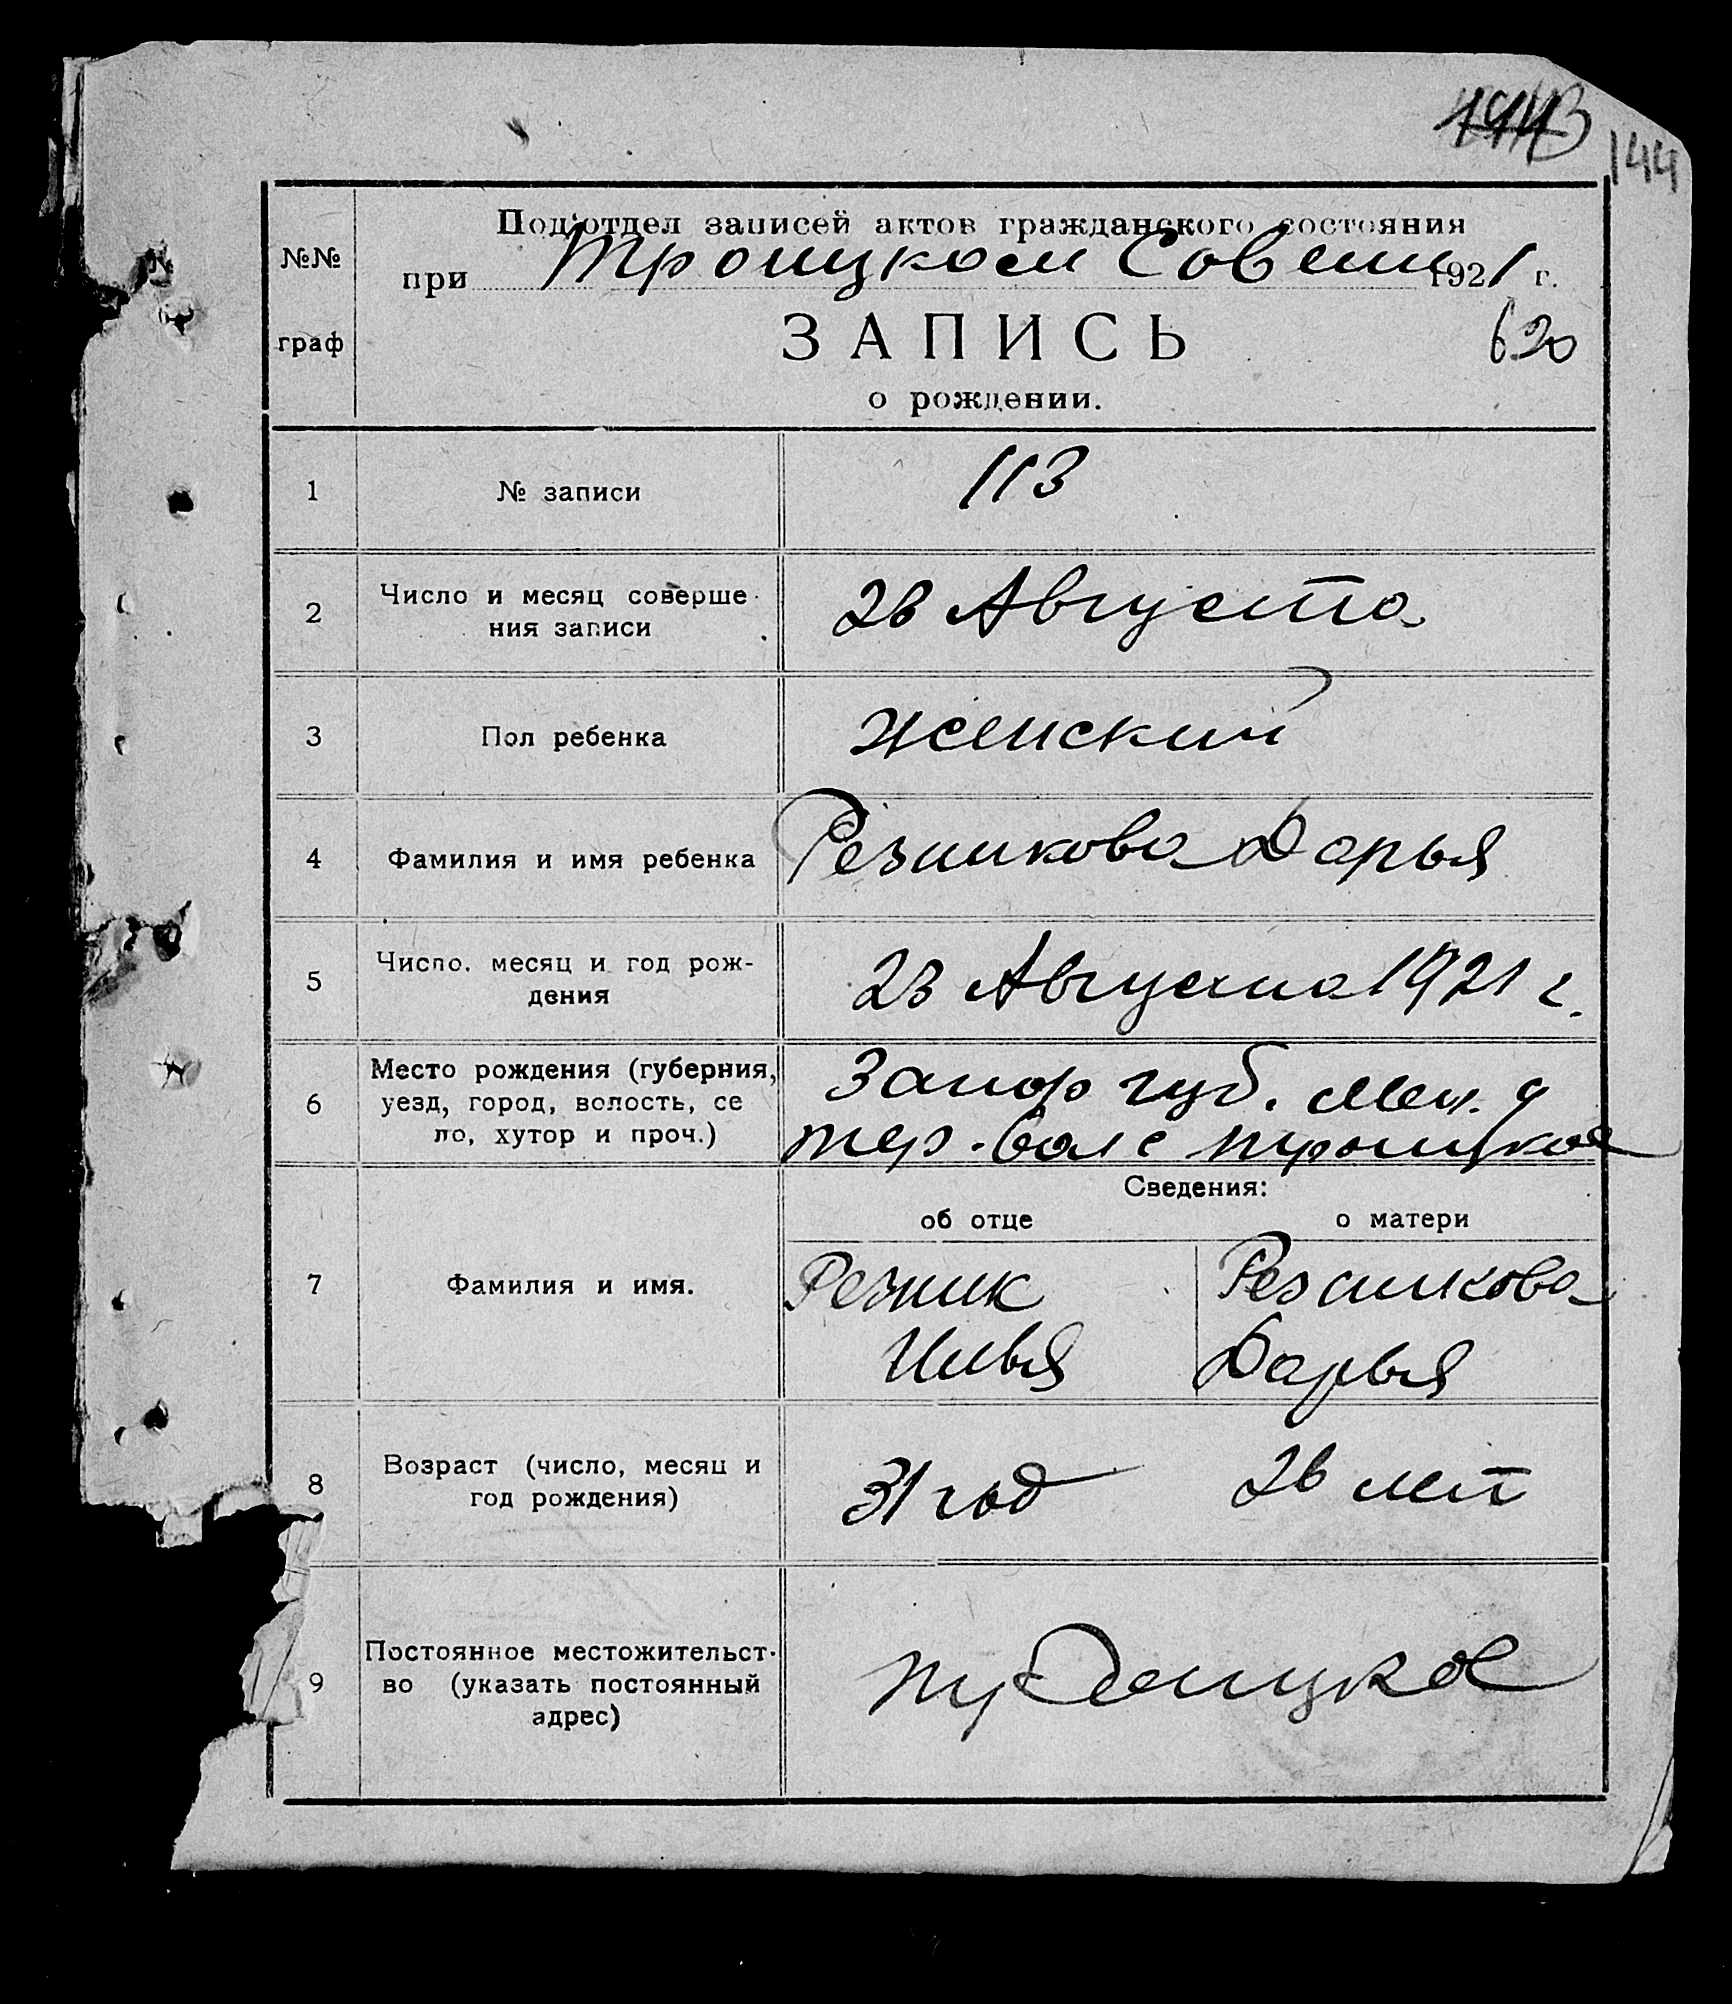 144
№№
граф
Подотдел записей актов гражданского состояния
при Троицком Совети 1921 г.
ЗАПИСЬ
620
о рождении.
1
№ записи
113
2
Число и месяц соверше
ния записи
28 Августа
3
Пол ребенка
женский
4
Фамилия и имя ребенка
Резникова Дарья
5
Число, месяц и год рож-
дения
23 Августа 1921 г.
6
Место рождения (губерния,
уезд, город, волость, се
ло, хутор и проч.)
Запор губ. Мел. у
тер. вол с троицкое
Сведения:
об отце
о матери
7
Фамилия и имя.
Резник
Илья
Резникова
Дарья
8
Возраст (число, месяц и
год рождения)
31 год
26 лет
9
Постоянное местожительст-
во (указать постоянный
адрес)
троицкое